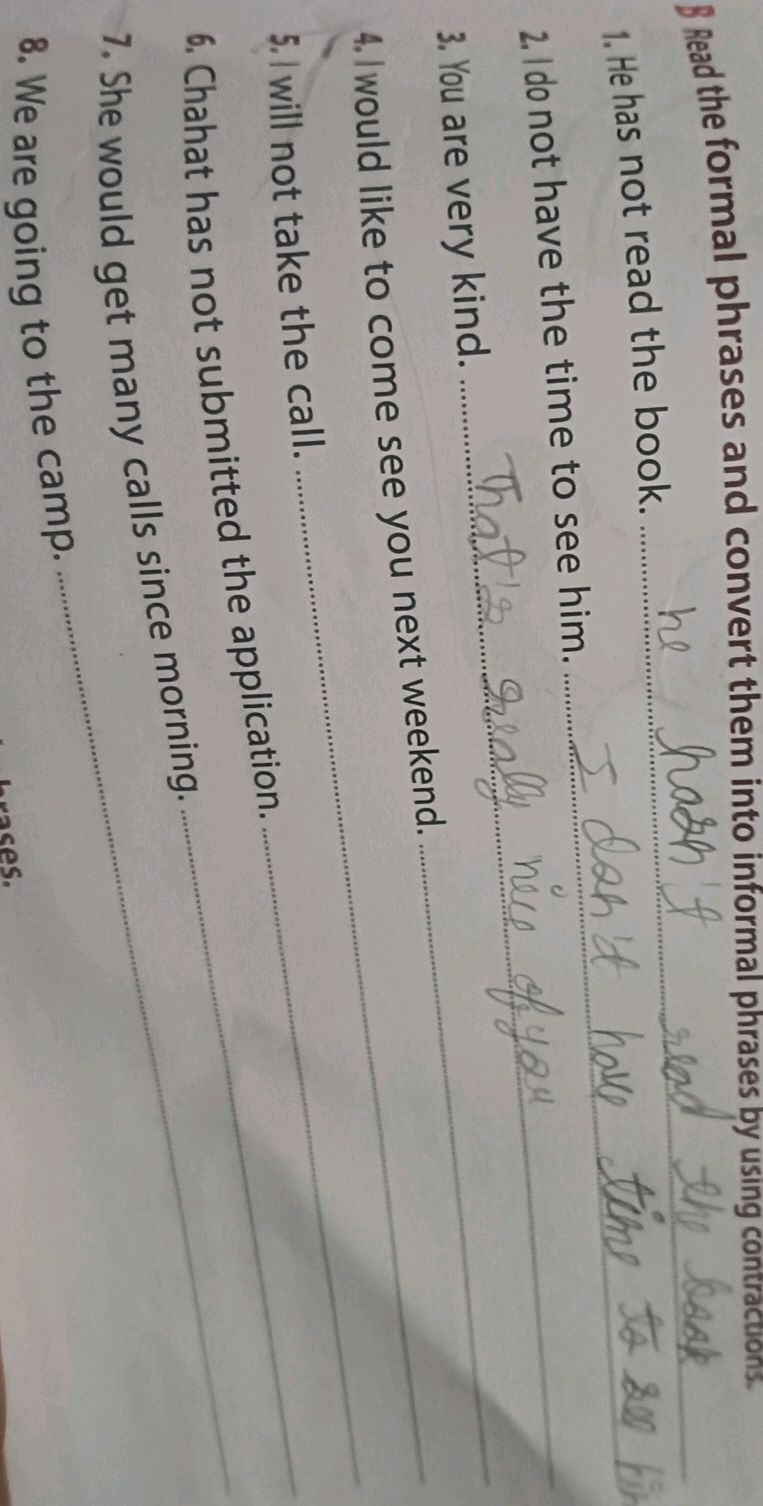 B Read the formal phrases and convert them into informal phrases by using contractions.
1. He has not read the book. he hasn't read the book
2. I do not have the time to see him. I don't have time to see him
3. You are very kind. That's really nice of you
4. I would like to come see you next weekend.
5. I will not take the call.
6. Chahat has not submitted the application.
7. She would get many calls since morning.
8. We are going to the camp.